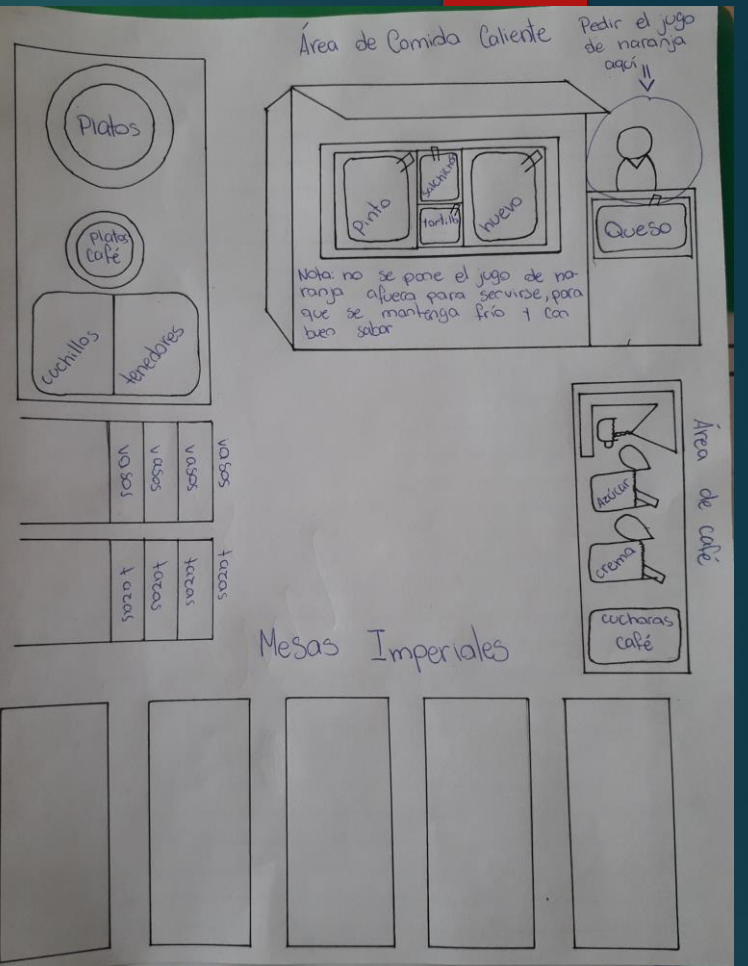 Área de Comida Caliente
Pedir el jugo
de naranja
aquí
Platos
Platos
Café
cuchillos
tenedores
Pinto
Salchichas
tortilla
huevo
Queso
Nota: no se pone el jugo de na-
ranja afuera para servirse, para
que se mantenga frío y con
buen sabor
vasos
vasos
vasos
vasos
tazas
tazas
tazas
tazas
Área de café
Azúcar
crema
cucharas
café
Mesas Imperiales